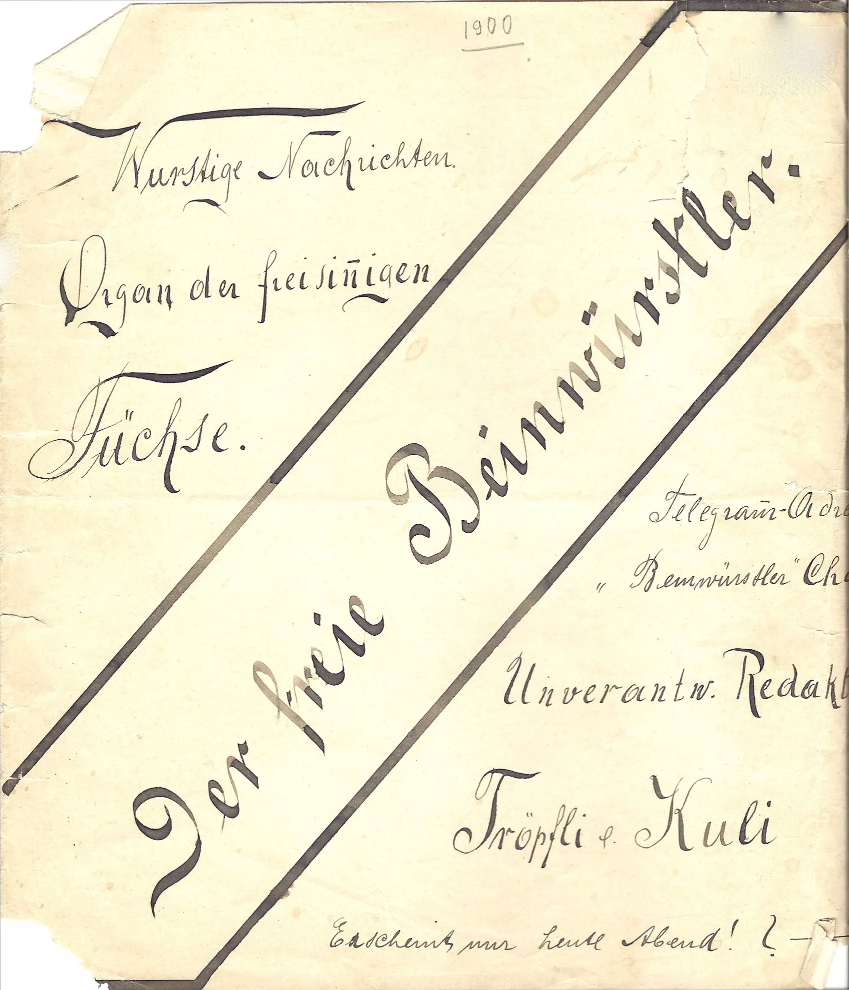 1900
Wurstige Nachrichten.
Organ der freisin̄igen
Füchse.
Der freie Beinwürstler.
Telegram̄-Adre
„Beinwürstler" Ch
Unverantw. Redakt
Tröpfli e. Kuli
Erscheint nur heute Abend!